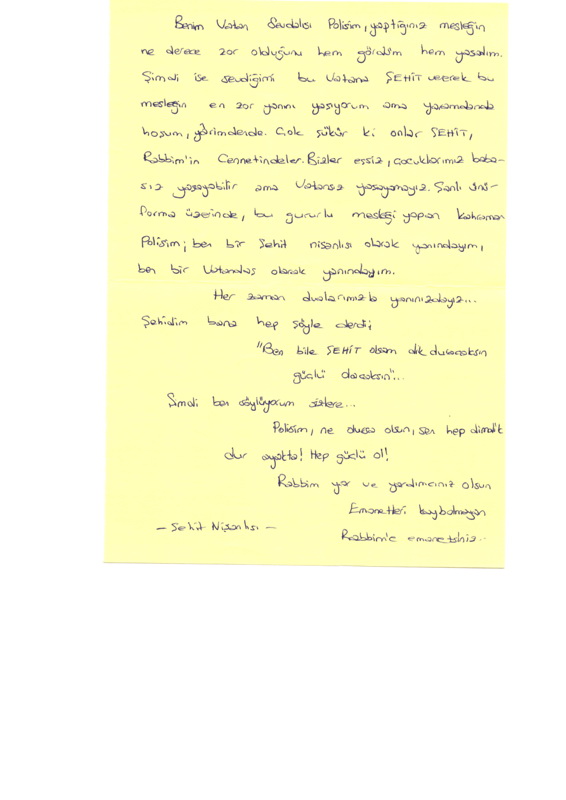 Benim Vatan Sevdalısı Polisim, yaptığınız mesleğin
ne derece zor olduğunu hem gördüm hem yaşadım.
Şimdi ise sevdiğimi bu Vatana ŞEHİT vererek bu
mesleğin en zor yanını yaşıyorum ama
Çok şükür ki onlar ŞEHİT,
Rabbim'in Cennetindeler. Bizler eşsiz, çocuklarımız baba-
sız yaşayabilir ama Vatansız yaşayamayız. Şanlı üni-
forma üzerinde, bu gururlu mesleği yapan Kahraman
Polisim; ben bir Şehit nişanlısı olarak yanındayım,
ben bir Vatandaş olarak yanındayım.
Her zaman dualarımızla yanınızdayız...
Şehidim bana hep şöyle derdi;
"Ben bile ŞEHİT olsam dik duracaksın
güçlü olacaksın"...
Şimdi ben söylüyorum sizlere...
Polisim, ne olursa olsun, sen hep dimdik
dur ayakta! Hep güçlü ol!
Rabbim yar ve yardımcınız olsun
Emanetleri kaybolmayan
- Şehit Nişanlısı -
Rabbim'e emanetsiniz..